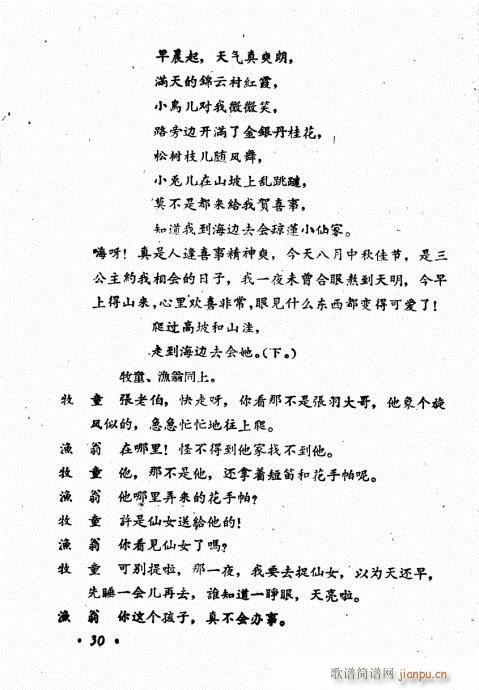 早晨起，天气真爽朗，
滿天的錦云衬紅霞，
小鳥儿对我微微笑，
路旁边开滿了金銀丹桂花，
松树枝儿随风舞，
小兎儿在山坡上乱跳躂，
莫不是都来給我賀喜事，
知道我到海边去会踪蓮小仙家。
嗨呀！真是人逢喜事精神爽，今天八月中秋佳节，是三
公主約我相会的日子，我一夜未曾合眼熬到天明，今早
上得山来，心里欢喜非常，眼见什么东西都变得可爱了！
爬过高坡和山洼，
走到海边去会她。（下。）
牧童、漁翁同上。
牧　童　張老伯，快走呀，你看那不是張羽大哥，他象个旋
风似的，急急忙忙地往上爬。
漁　翁　在哪里！怪不得到他家找不到他。
牧　童　他，那不是他，还拿着短笛和花手帕呢。
漁　翁　他哪里弄来的花手帕？
牧　童　許是仙女送給他的！
漁　翁　你看見仙女了嗎？
牧　童　可别提啦，那一夜，我要去捉仙女，以为天还早，
先睡一会儿再去，誰知道一睁眼，天亮啦。
漁　翁　你这个孩子，真不会办事。
· 30 ·
歌谱简谱网
jianpu.cn